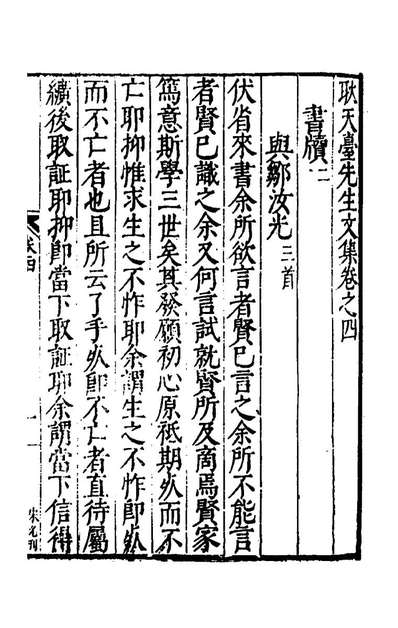 耿天臺先生文集卷之四
書牘二
與鄒汝光三首
伏省來書余所欲言者賢已言之余所不能言
者賢已識之余又何言試就賢所及商焉賢家
篤意斯學三世矣其發願初心原祇期死而不
亡耶抑惟求生之不怍耶余謂生之不怍即死
而不亡者也且所云了手死即不亡者直待屬
纊後取証耶抑即當下取証耶余謂當下信得
卷四
一